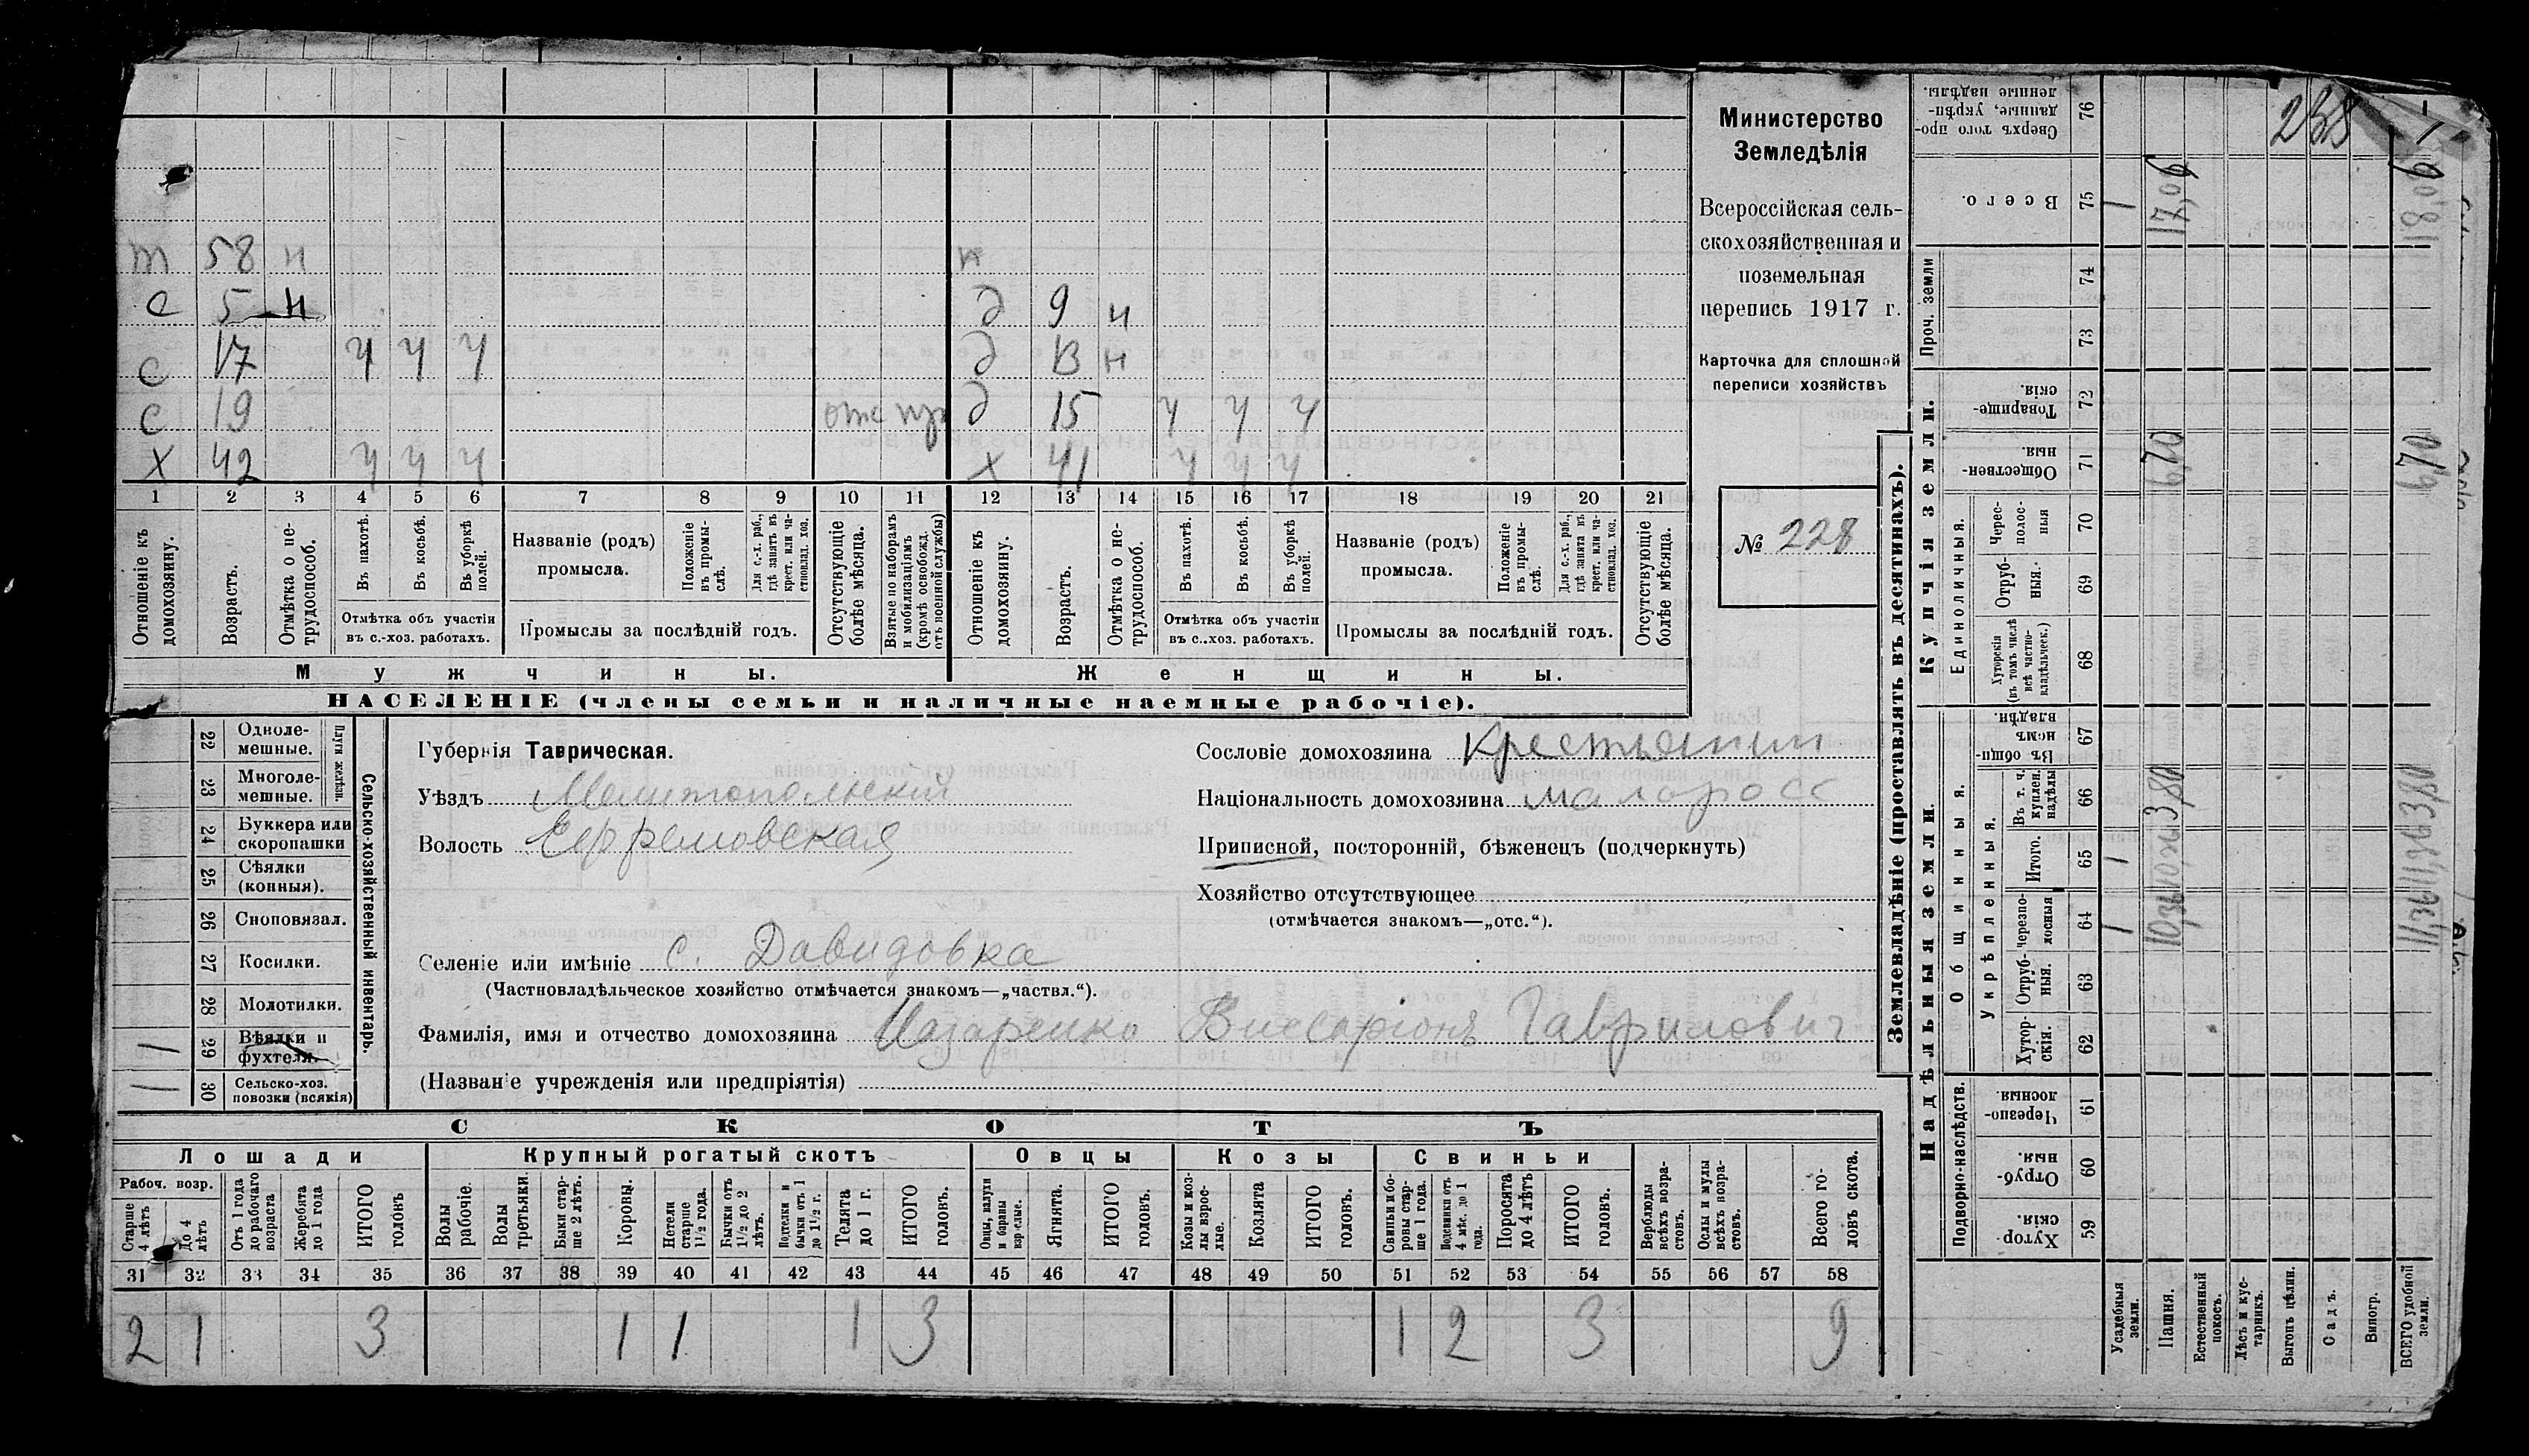 Министерство
Земледѣлія
Всероссійская сель-
скохозяйственная и
поземельная
перепись 1917 г.
Карточка для сплошной
переписи хозяйствъ
№ 228
т 58 н
с 5 н д 9 н
с 17 ч ч ч д 13 н
с 19 д 15 ч ч ч
х 42 ч ч ч х 41 ч ч ч
1 2 3 4 5 6 7 8 9 10 11 12 13 14 15 16 17 18 19 20 21
Отношеніе къ домохозяину.
Возрастъ.
Отмѣтка о не-трудоспособ.
Въ пахотѣ.
Въ косьбѣ.
Въ уборкѣ полей.
Отмѣтка объ участіи
въ с.-хоз. работахъ.
Названіе (родъ)
промысла.
Положеніе въ промы-слѣ.
Для с.-х. раб., гдѣ занятъ въ крест. или ча-стновлад. хоз.
Промыслы за послѣдній годъ.
Отсутствующіе болѣе мѣсяца.
Взятые по наборамъ и мобилизаціямъ (кромѣ освобожд. отъ военной службы)
Отношеніе къ домохозяину.
Возрастъ.
Отмѣтка о не-трудоспособ.
Въ пахотѣ.
Въ косьбѣ.
Въ уборкѣ полей.
Отмѣтка объ участіи
въ с.-хоз. работахъ.
Названіе (родъ)
промысла.
Положеніе въ промы-слѣ.
Для с.-х. раб., гдѣ занята въ крест. или ча-стновлад. хоз.
Промыслы за послѣдній годъ.
Отсутствующіе болѣе мѣсяца.
Мужчины. Женщины.
НАСЕЛЕНІЕ (члены семьи и наличные наемные рабочіе).
Сельско-хозяйственный инвентарь.
Плуги желѣзн.
22 Одноле-мешные.
23 Многоле-мешные.
24 Буккера или скоропашки
25 Сѣялки (конныя).
26 Сноповязал.
27 Косилки.
28 Молотилки.
29 Вѣялки и фухтеля. 1
30 Сельско-хоз. повозки (всякія) 1
Губернія Таврическая.
Уѣздъ Мелитопольскій
Волость Ефремовская
Сословіе домохозяина Крестьянин
Національность домохозяина малоросс
Приписной, посторонній, бѣженецъ (подчеркнуть)
Хозяйство отсутствующее
(отмѣчается знакомъ—„отс.“).
Селеніе или имѣніе с. Давидовка
(Частновладѣльческое хозяйство отмѣчается знакомъ—„частвл.“).
Фамилія, имя и отчество домохозяина Назаренко Виссаріонъ Гаврилович
(Названіе учрежденія или предпріятія)
СКОТЪ
Лошади Крупный рогатый скотъ Овцы Козы Свиньи
Рабоч. возр.
Старше 4 лѣтъ
До 4 лѣтъ
Отъ 1 года до рабочаго возраста
Жеребята до 1 года
ИТОГО головъ
Волы рабочіе.
Волы третьяки.
Быки стар-ше 2 лѣтъ.
Коровы.
Нетели старше 1½ года.
Бычки отъ 1½ до 2 лѣтъ.
Телята до 1 г.
ИТОГО головъ.
Овцы, валухи и бараны взрослые.
Ягнята.
ИТОГО головъ.
Козы и коз-лы взрос-лые.
Козлята
ИТОГО головъ.
Свиньи и бо-ровы стар-ше 1 года.
Подсвинки отъ 4 мѣс. до 1 года.
Поросята до 4 лѣтъ
ИТОГО головъ.
Верблюды всѣхъ возра-стовъ.
Ослы и мулы всѣхъ возра-стовъ.
Всего го-ловъ скота.
31 32 33 34 35 36 37 38 39 40 41 42 43 44 45 46 47 48 49 50 51 52 53 54 55 56 57 58
2 1 3 1 1 1 3 1 2 3 9
Землевладѣніе (проставлять въ десятинахъ).
Надѣльныя земли. Купчія земли.
Подворно-наслѣдств.
Общинныя.
Укрѣпленныя.
Единоличныя.
Проч. земли
59 Хутор-скія.
60 Отруб-ныя.
61 Черезпо-лосныя.
62 Хутор-скія.
63 Отруб-ныя.
64 Черезпо-лосныя
65 Итого.
66 Въ т. ч. куплен. надѣлы
67 Въ общин-номъ владѣн.
68 Хуторскія (въ томъ числѣ всѣ частно-владѣльческ.)
69 Отруб-ныя.
70 Черес-полос-ныя
71 Обществен-ныя.
72 Товарище-скія.
73
74
75 Всего.
76 Сверхъ того про-данные, укрѣп-ленные надѣлы.
Усадебныя земли. 1 1 1
Пашня. 10,36 10,36 3,80 6,70 17,06
Естественный покосъ.
Лѣсъ и кус-тарникъ.
Выгонъ цѣлин.
Садъ.
Виногр.
ВСЕГО удобной земли. 11,36 11,36 3,80 6,70 18,06